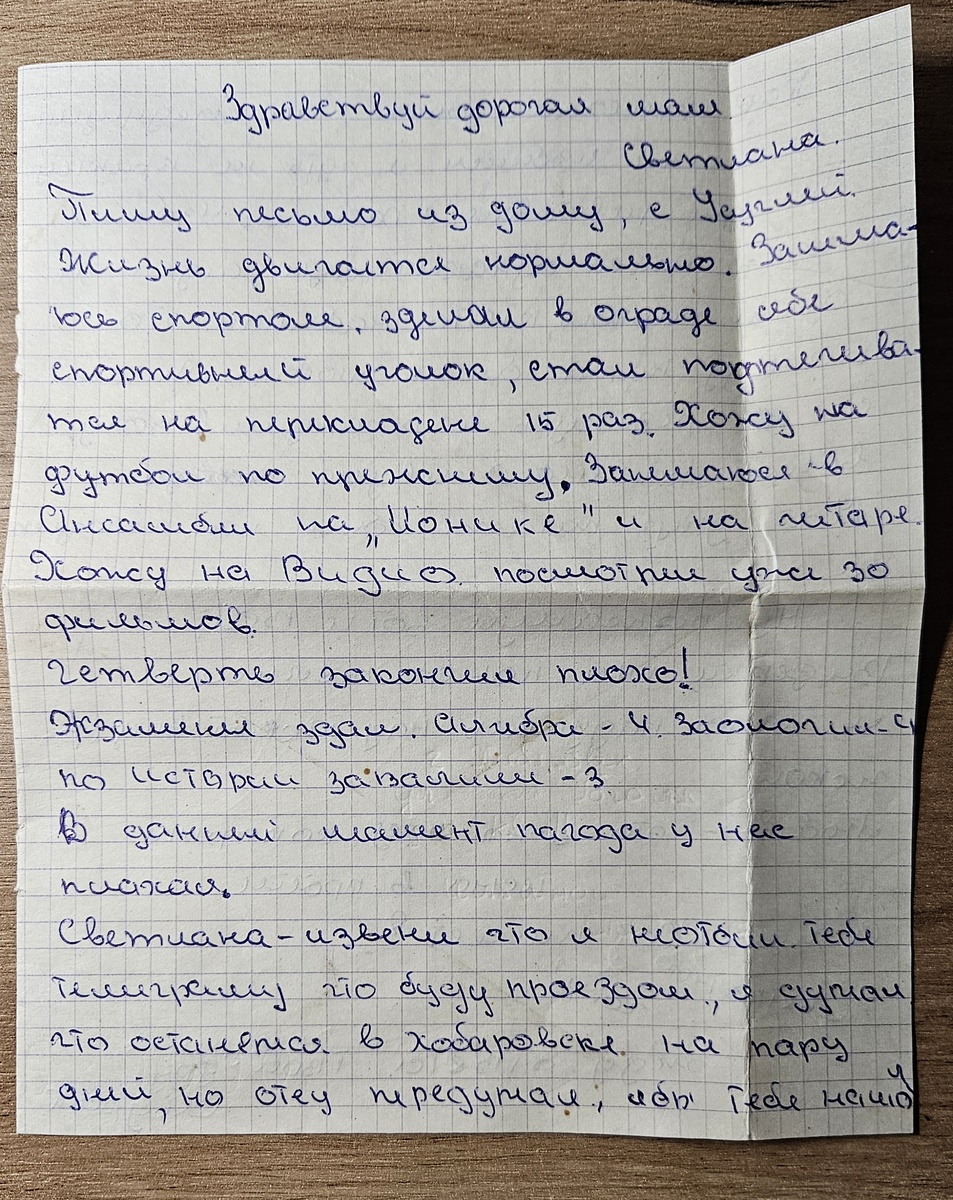 Здравствуй дорогая мам
Светлана.
Пишу песьмо из дому, с
Жизнь двигается нормально. Занима-
юсь спортом, зделал в ограде себе
спортивней уголок, стал подтегива-
тся на перекладене 15 раз. Хожу на
футбол по прежниму. Занимаюся в
Ансамбли на „Ионике" и на гитаре.
Хожу на Видио. посмотрил уже 30
фильмов.
Четверть закончил плохо!
Экзамены здал. Алгибра - 4. Заология - 4
по Истории завалили - 3.
В даний мамент пагода у нас
плахая.
Светлана - извени что я неотбил тебе
телиграмму что буду проездом, я думал
что останемся в хобаровске на пару
дней, но отец передумал,